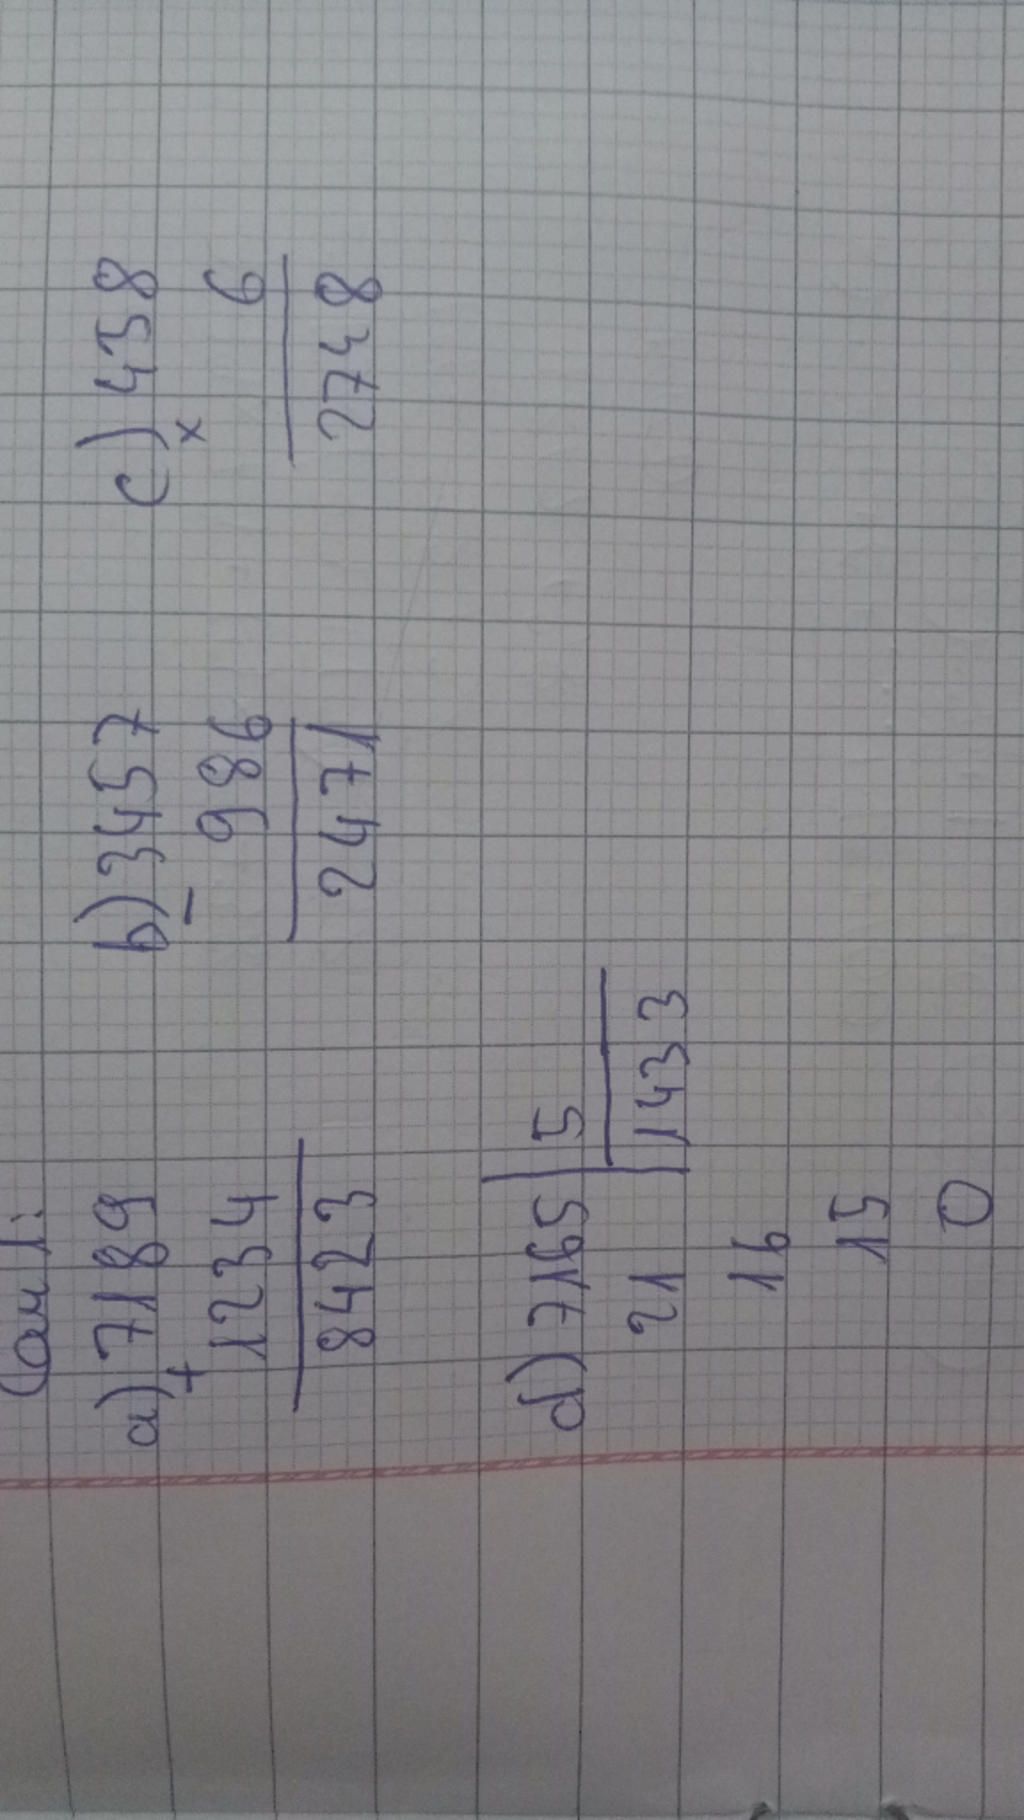 Câu 1:
a) 7189 b) 3457 c) 458
+ - x
1234 986 6
8423 2471 2748
d) 7165 5
21 1433
16
15
0